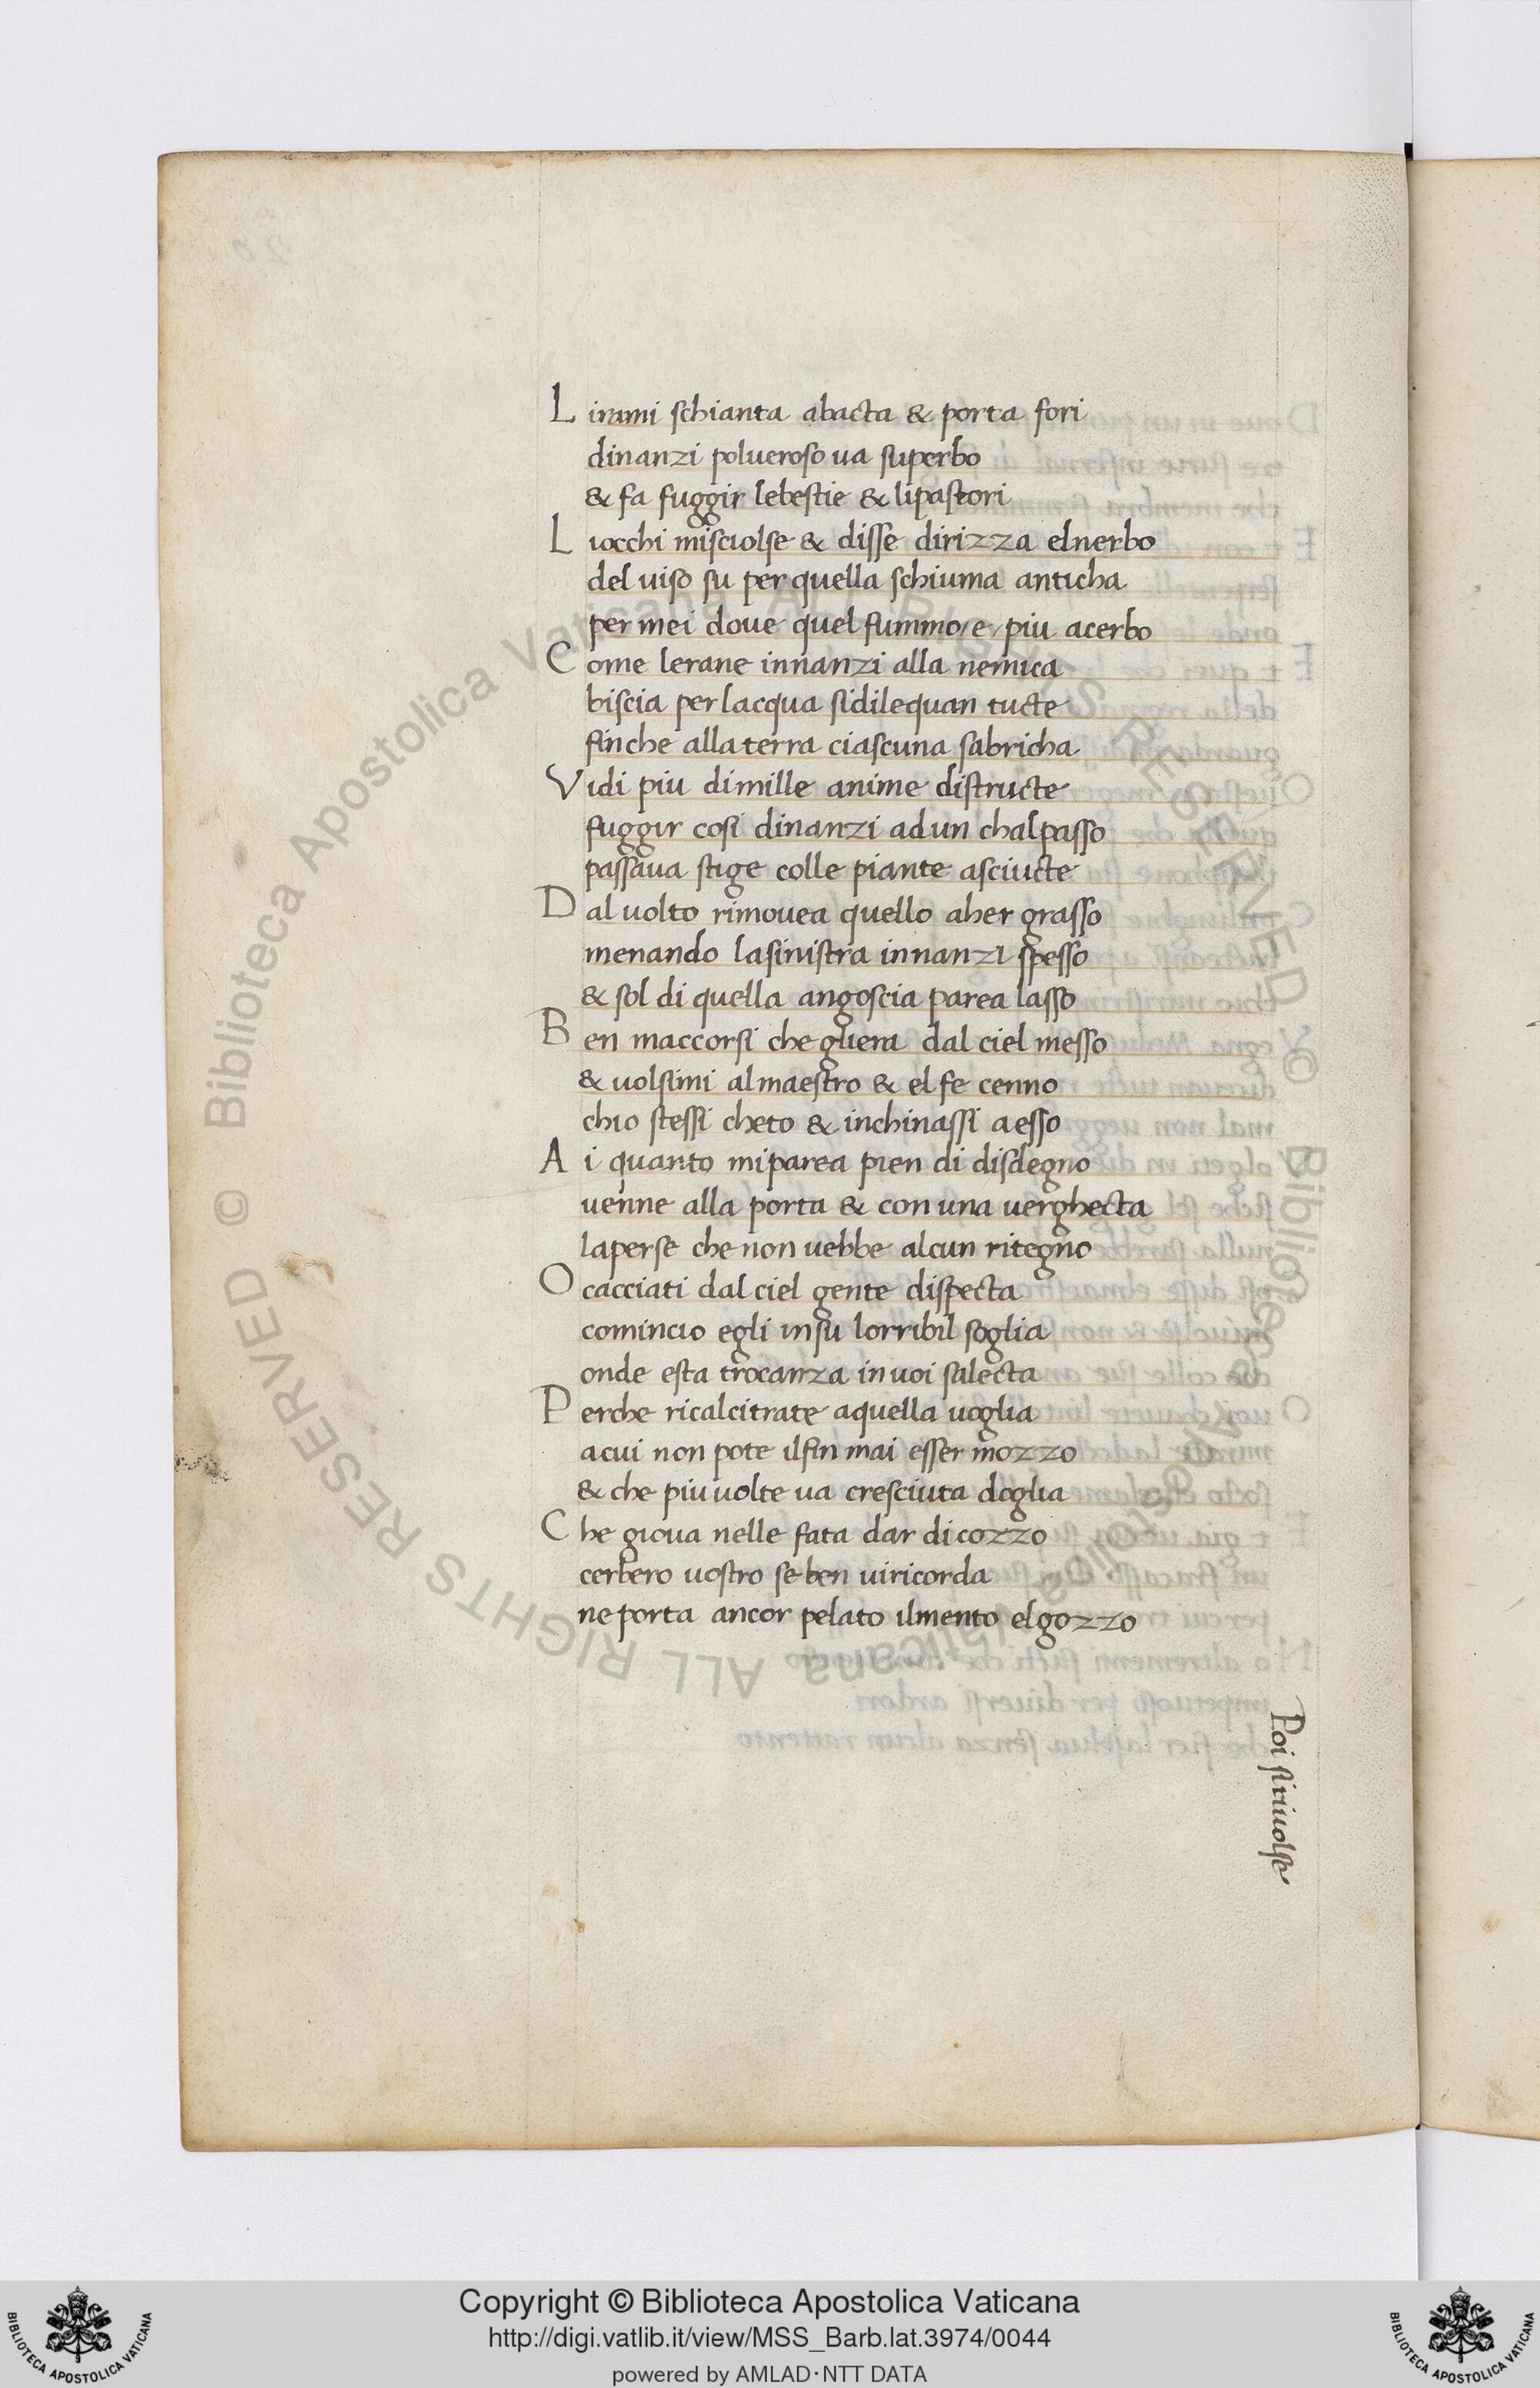 L irami schianta abacta & porta fori
dinanzi polueroso ua superbo
& fa fuggir lebestie & lipastori
L iocchi misciolse & disse dirizza elnerbo
del uiso su per quella schiuma anticha
per mei doue quel fummo/e/piu acerbo
C ome lerane innanzi alla nemica
biscia per lacqua sidilequan tucte
fin che alla terra ciascuna sabricha
V idi piu dimille anime distructe
fuggir cosi dinanzi ad un chalpasso
passaua stige colle piante asciucte
D al uolto rimouea quello aher grasso
menando lasinistra innanzi spesso
& sol di quella angoscia parea lasso
B en maccorsi che gliera dal ciel messo
& uolsimi almaestro & el fe cenno
chio stessi cheto & inchinassi a esso
A i quanto miparea pien di disdegno
uenne alla porta & con una verghecta
laperse che non uebbe alcun ritegno
O cacciati dal ciel gente dispecta
comincio egli insu lorribil soglia
onde esta trocanza in uoi salecta
P erche ricalcitrate aquella uoglia
acui non pote ilfin mai esser mozzo
& che piu uolte ua cresciuta doglia
C he gioua nelle fata dar di cozzo
cerbero uostro se ben uiricorda
ne porta ancor pelato ilmento elgozzo
Poi siriuolse
Copyright © Biblioteca Apostolica Vaticana
http://digi.vatlib.it/view/MSS_Barb.lat.3974/0044
powered by AMLAD·NTT DATA
BIBLIOTECA APOSTOLICA VATICANA
BIBLIOTECA APOSTOLICA VATICANA
Biblioteca Apostolica Vaticana ALL RIGHTS RESERVED ©